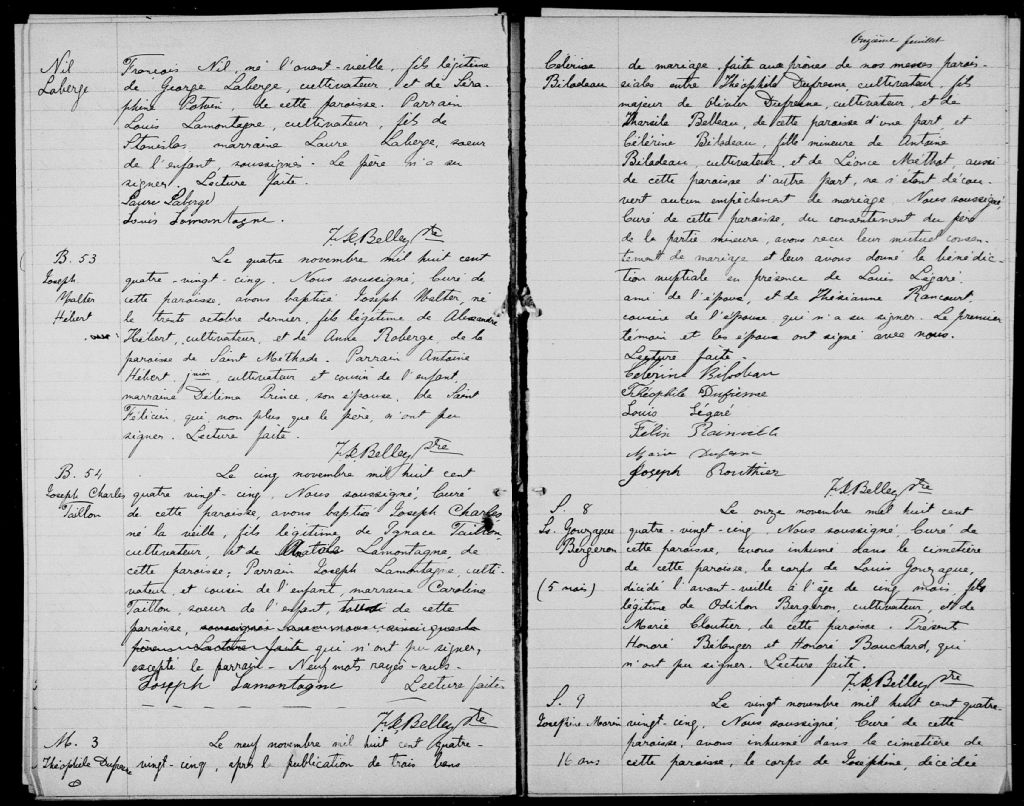 Nil
Laberge
François Nil, né l'avant-veille, fils légitime
de George Laberge, cultivateur, et de Séra-
phine Potvin, de cette paroisse. Parrain
Louis Lamontagne, cultivateur, fils de
Stanislas, marraine Laure Laberge, soeur
de l'enfant, soussignés. Le père n'a su
signer. Lecture faite.
Laure Laberge
Louis Lamontagne.
Belley Ptre
B. 53
Joseph
Walter
Hébert
Le quatre novembre mil huit cent
quatre-vingt-cinq. Nous soussigné, Curé de
cette paroisse, avons baptisé Joseph Walter, né
le trente octobre dernier, fils légitime de Alexandre
Hébert, cultivateur, et de Anna Roberge, de la
paroisse de Saint Méthode. Parrain Antoine
Hébert, junior, cultivateur et cousin de l'enfant,
marraine Delima Prince, son épouse, de Saint
Félicien, qui non plus que le père, n'ont pu
signer. Lecture faite.
Belley Ptre
B. 54
Joseph Charles
Taillon
Le cinq novembre mil huit cent
quatre vingt-cinq, Nous soussigné, Curé
de cette paroisse, avons baptisé Joseph Charles
né la veille, fils légitime de Ignace Taillon
cultivateur, et de Lamontagne, de
cette paroisse; Parrain Joseph Lamontagne, culti-
vateur, et cousin de l'enfant, marraine Caroline
Taillon, soeur de l'enfant, de cette
paroisse,
faite qui n'ont pu signer,
excepté le parrain - Neuf mots rayés nuls -
Joseph Lamontagne Lecture faite
Belley Ptre
M. 3
Théophile Dufresne
Le neuf novembre mil huit cent quatre-
vingt-cinq, après la publication de trois bans
Onzième feuillet
Célérine
Bilodeau
de mariage, faite aux prônes de nos messes parois-
siales entre Théophile Dufresne, cultivateur, fils
majeur de Olivier Dufresne, cultivateur, et de
Tharsile Belleau, de cette paroisse d'une part et
Célérine Bilodeau, fille mineure de Antoine
Bilodeau, cultivateur, et de Léonce Méthot, aussi
de cette paroisse d'autre part, ne s'étant décou-
vert aucun empêchement de mariage, Nous soussigné,
Curé de cette paroisse, du consentement du père
de la partie mineure, avons reçu leur mutuel consen-
tement de mariage et leur avons donné la bénédic-
tion nuptiale en présence de Louis Légaré
ami de l'époux, et de Thésianne Rancourt,
cousine de l'épouse, qui n'a su signer. Le premier
témoin et les époux ont signé avec nous.
Lecture faite.
Célérine Bilodeau
Théophile Dufresne
Louis Légaré
Félix Rainville
Maria Dufresne
Joseph Routhier
Belley Ptre
S. 8
Ls. Gonzague
Bergeron
(5 mois)
Le onze novembre mil huit cent
quatre-vingt-cinq, Nous soussigné, Curé de
cette paroisse, avons inhumé dans le cimetière
de cette paroisse, le corps de Louis Gonzague,
décédé l'avant-veille à l'âge de cinq mois, fils
légitime de Odilon Bergeron, cultivateur, et de
Marie Cloutier, de cette paroisse. Présents
Honoré Bélanger et Honoré Bouchard, qui
n'ont pu signer. Lecture faite.
Belley Ptre
S. 9
Joséphine Morin
16 ans
Le vingt novembre mil huit cent quatre-
vingt-cinq, Nous soussigné, Curé de cette
paroisse, avons inhumé dans le cimetière de
cette paroisse, le corps de Joséphine, décédée